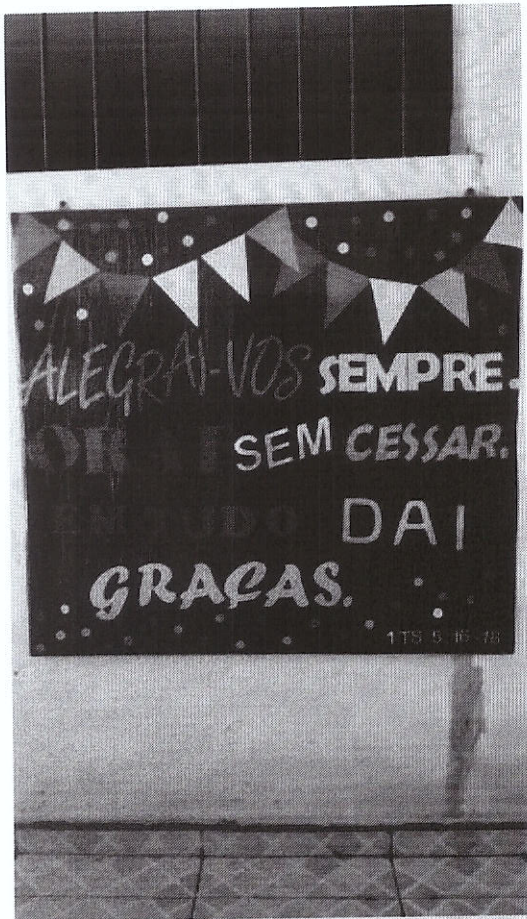 ALEGRAI-VOS SEMPRE.
ORAI SEM CESSAR.
EM TUDO DAI
GRAÇAS.
1 TS 5 16-18